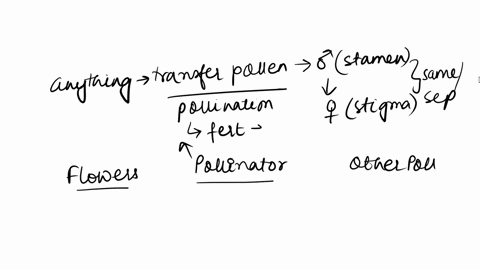 anything → transfer pollen → ♂ (stamen)
↓
♀ (stigma) } same/
sep
pollination
↳ fert →
Flowers
Pollinator
Other Poll